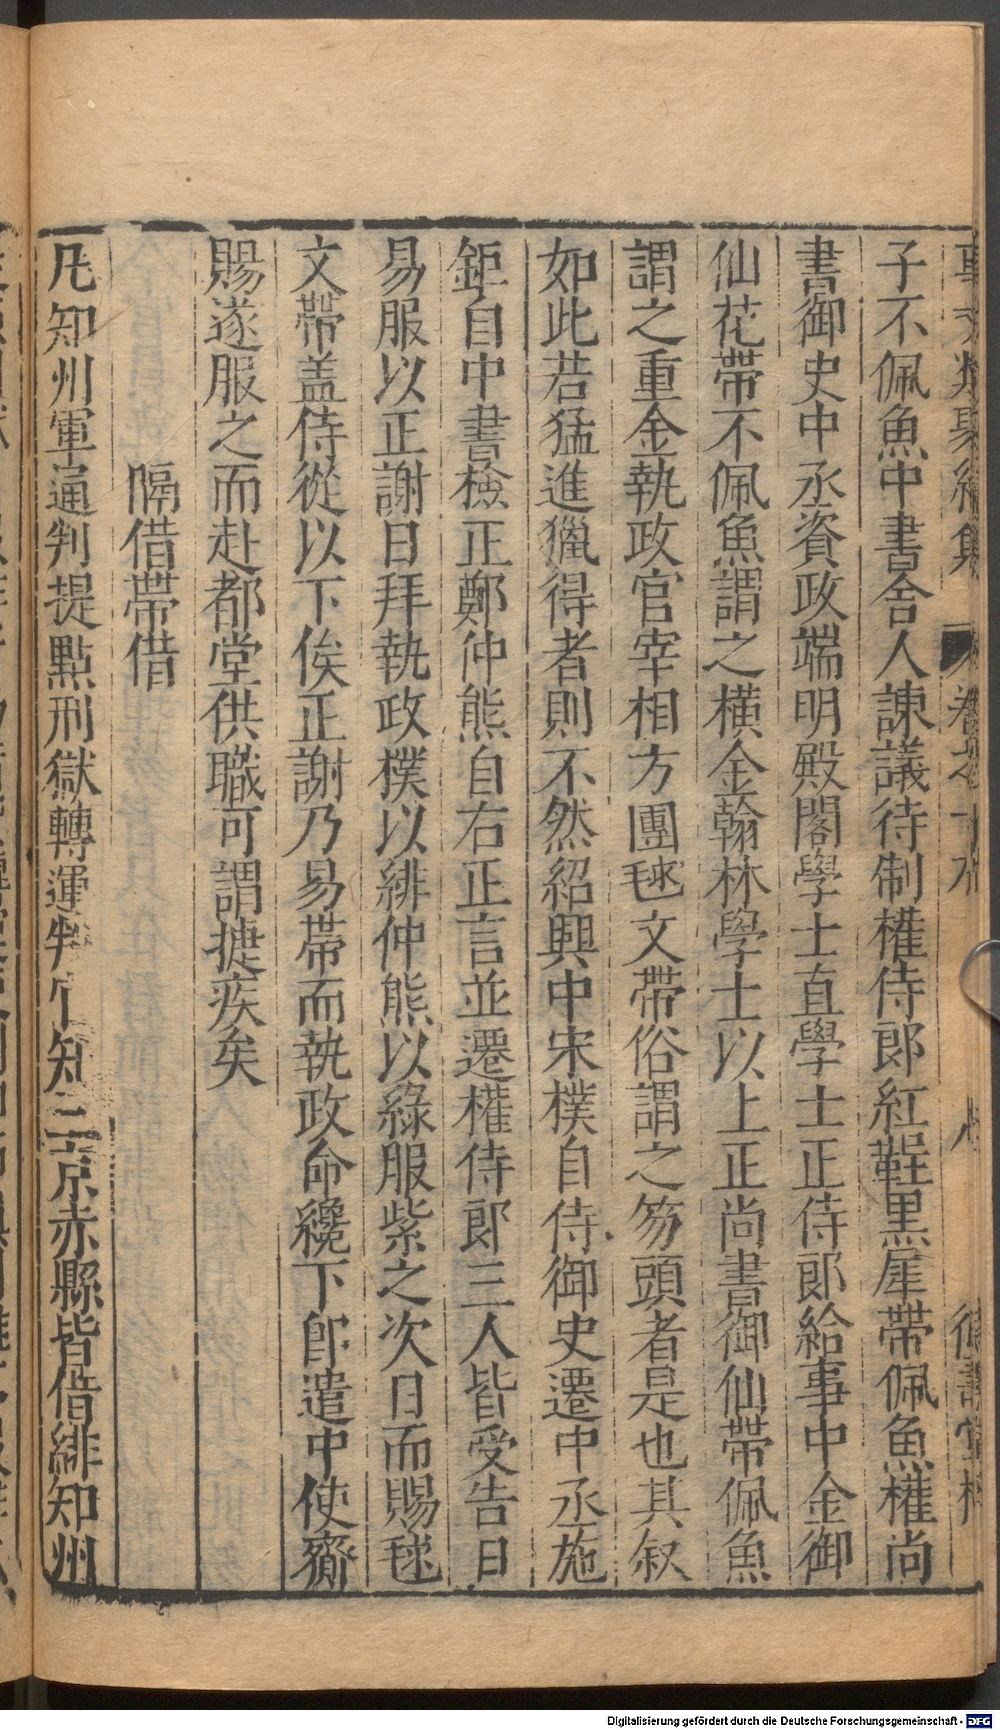 子不佩魚中書舍人諫議待制權侍郎紅鞓黑犀帶佩魚權尚
書御史中丞資政端明殿閣學士直學士正侍郎給事中金御
仙花帶不佩魚謂之橫金翰林學士以上正尚書御仙帶佩魚
謂之重金執政官宰相方團毬文帶俗謂之笏頭者是也其叙
如此若猛進獵得者則不然紹興中宋樸自侍御史遷中丞施
鉅自中書檢正鄭仲熊自右正言並遷權侍郎三人皆受告日
易服以正謝日拜執政樸以緋仲熊以綠服紫之次日而賜毬
文帶盖侍從以下俟正謝乃易帶而執政命纔下卽遣中使齎
賜遂服之而赴都堂供職可謂捷疾矣
隔借帶借
凡知州軍通判提點刑獄轉運判 知三京赤縣皆借緋知州
Digitalisierung gefördert durch die Deutsche Forschungsgemeinschaft - DFG